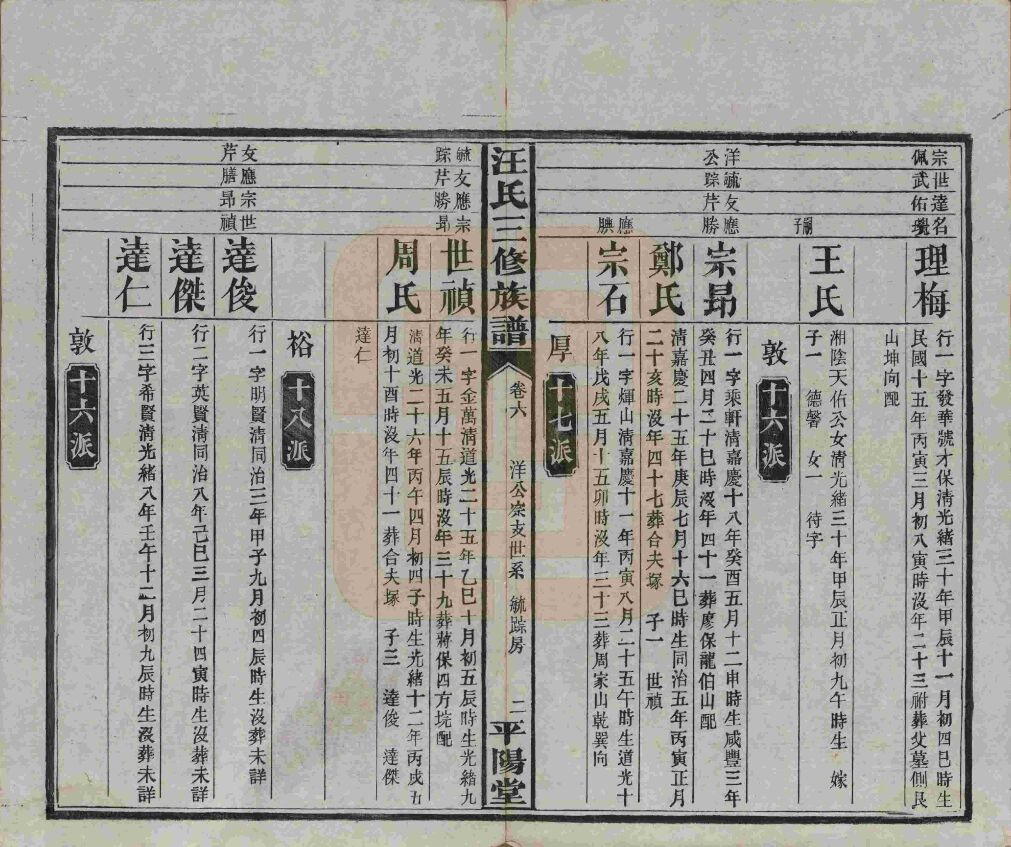 宗世達名
佩武佑璺
理梅
行一字發華號才保淸光緒三十年甲辰十一月初四巳時生
民國十五年丙寅三月初八寅時沒年二十三祔葬父墓側艮
山坤向配
嗣子
王氏
湘陰天佑公女淸光緒三十年甲辰正月初九午時生　嫁
子一　德馨　女一　待字
敦 十六派
洋毓友應
公踪芹勝
宗昻
行一字乘軒淸嘉慶十八年癸酉五月十二申時生咸豐三年
癸丑四月二十巳時沒年四十一葬廖保龍伯山配
鄭氏
淸嘉慶二十五年庚辰七月十六巳時生同治五年丙寅正月
二十亥時沒年四十七葬合夫塚　子一　世禎
應
腆
宗石
行一字煇山淸嘉慶十一年丙寅八月二十五午時生道光十
八年戊戌五月十五卯時沒年三十三葬周家山乾巽向
厚 十七派
汪氏三修族譜
卷六　洋公宗支世系　毓踪房　二
平陽堂
毓友應宗
踪芹勝昻
世禎
行一字金萬淸道光二十五年乙巳十月初五辰時生光緒九
年癸未五月十五辰時沒年三十九葬蔣保四方垸配
周氏
淸道光二十六年丙午四月初四子時生光緒十二年丙戌五
月初十酉時沒年四十一葬合夫塚　子三　達俊　達傑
達仁
裕 十八派
友應宗世
芹膳昻禎
達俊
行一字明賢淸同治三年甲子九月初四辰時生沒葬未詳
達傑
行二字英賢淸同治八年己巳三月二十四寅時生沒葬未詳
達仁
行三字希賢淸光緒八年壬午十二月初九辰時生沒葬未詳
敦 十六派